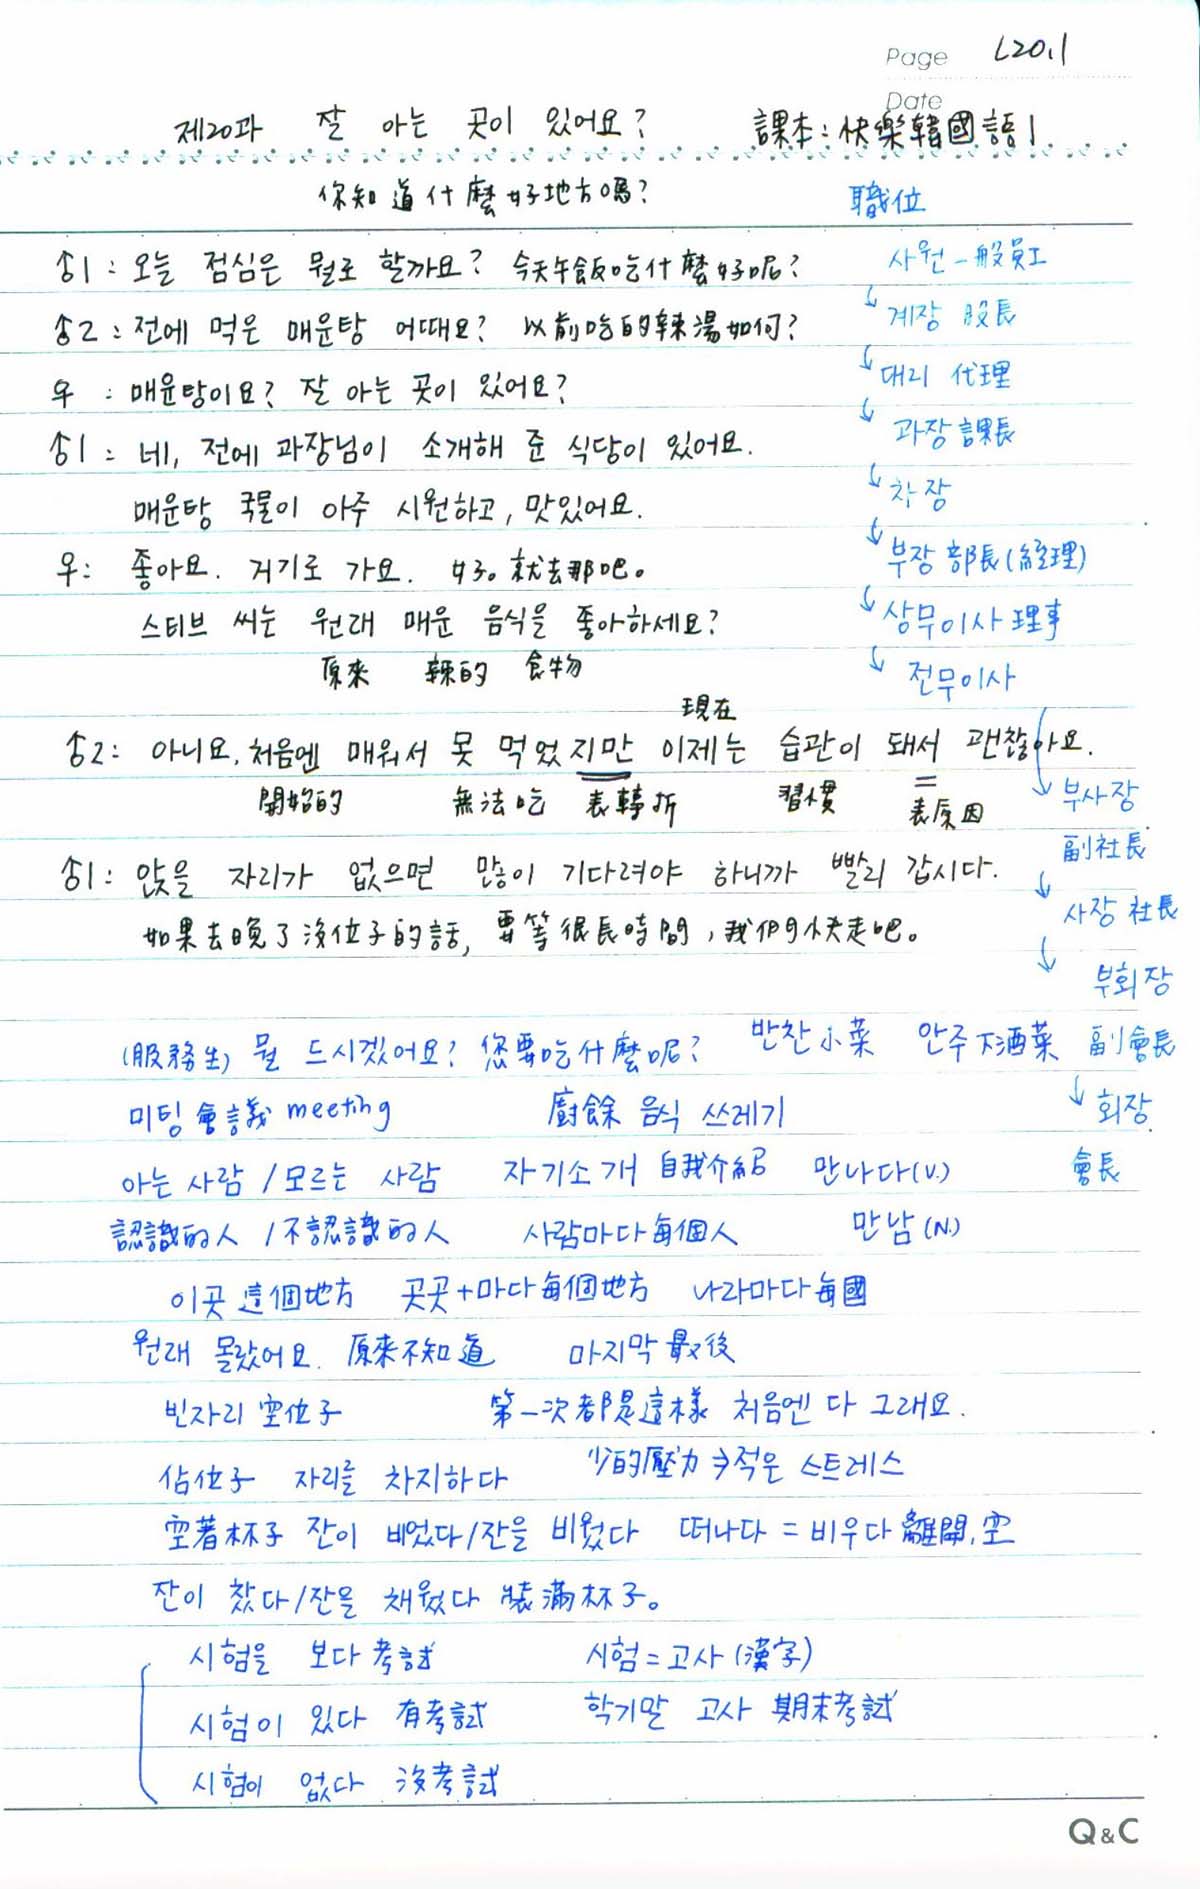 Page L20.1
Date
제20과 잘 아는 곳이 있어요? 課本:快樂韓國語1
你知道什麼好地方嗎? 職位
♂1: 오늘 점심은 뭘로 할까요? 今天午飯吃什麼好呢? 사원 一般員工
♂2: 전에 먹은 매운탕 어때요? 以前吃的辣湯如何? ↓계장 股長
우: 매운탕이요? 잘 아는 곳이 있어요? ↓대리 代理
♂1: 네, 전에 과장님이 소개해 준 식당이 있어요. ↓과장 課長
매운탕 국물이 아주 시원하고, 맛있어요. ↓차장
우: 좋아요. 거기로 가요. 好。就去那吧。 ↓부장 部長(經理)
스티브 씨는 원래 매운 음식을 좋아하세요? ↓상무이사 理事
原來 辣的 食物 ↓전무이사
現在
♂2: 아니요. 처음엔 매워서 못 먹었지만 이제는 습관이 돼서 괜찮아요.
開始的 無法吃 表轉折 習慣 表原因 ↓부사장
副社長
♂1: 앉을 자리가 없으면 많이 기다려야 하니까 빨리 갑시다.
↓사장 社長
如果去晚了沒位子的話, 要等很長時間,我們快走吧。
↓부회장
(服務生) 뭘 드시겠어요? 您要吃什麼呢? 반찬 小菜 안주 下酒菜 副會長
미팅 會議 meeting 廚餘 음식 쓰레기 ↓회장
아는 사람 / 모르는 사람 자기소개 自我介紹 만나다(V.) 會長
認識的人 / 不認識的人 사람마다 每個人 만남(N.)
이곳 這個地方 곳곳+마다 每個地方 나라마다 每國
원래 몰랐어요. 原來不知道 마지막 最後
빈자리 空位子 第一次都是這樣 처음엔 다 그래요.
佔位子 자리를 차지하다 少的壓力 → 적은 스트레스
空著杯子 잔이 비었다/잔을 비웠다 떠나다 = 비우다 離開,空
잔이 찼다/잔을 채웠다 裝滿杯子。
시험을 보다 考試 시험=고사(漢字)
시험이 있다 有考試 학기말 고사 期末考試
시험이 없다 沒考試
Q&C